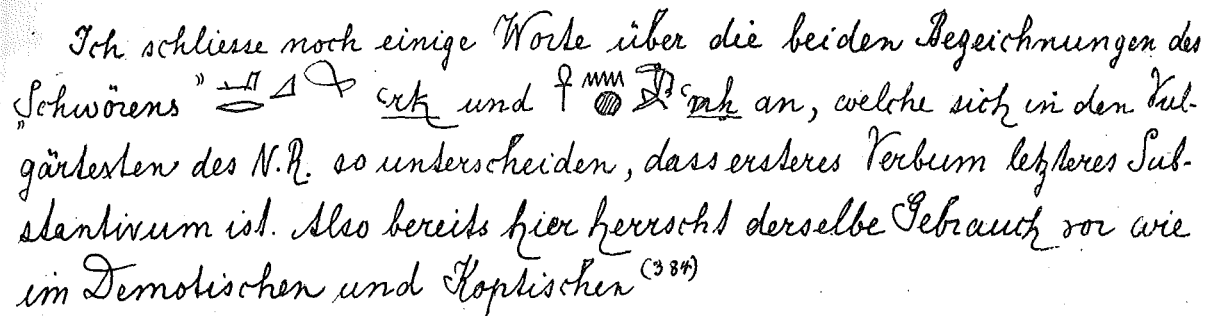 Ich schliesse noch einige Worte über die beiden Bezeichnungen des
Schwörens" ꜥrḳ und ꜥnḫ an, welche sich in den Vul-
gärtexten des N.R. so unterscheiden, dass ersteres Verbum letzteres Sub-
stantivum ist. Also bereits hier herrscht derselbe Gebrauch vor wie
im Demotischen und Koptischen (384)